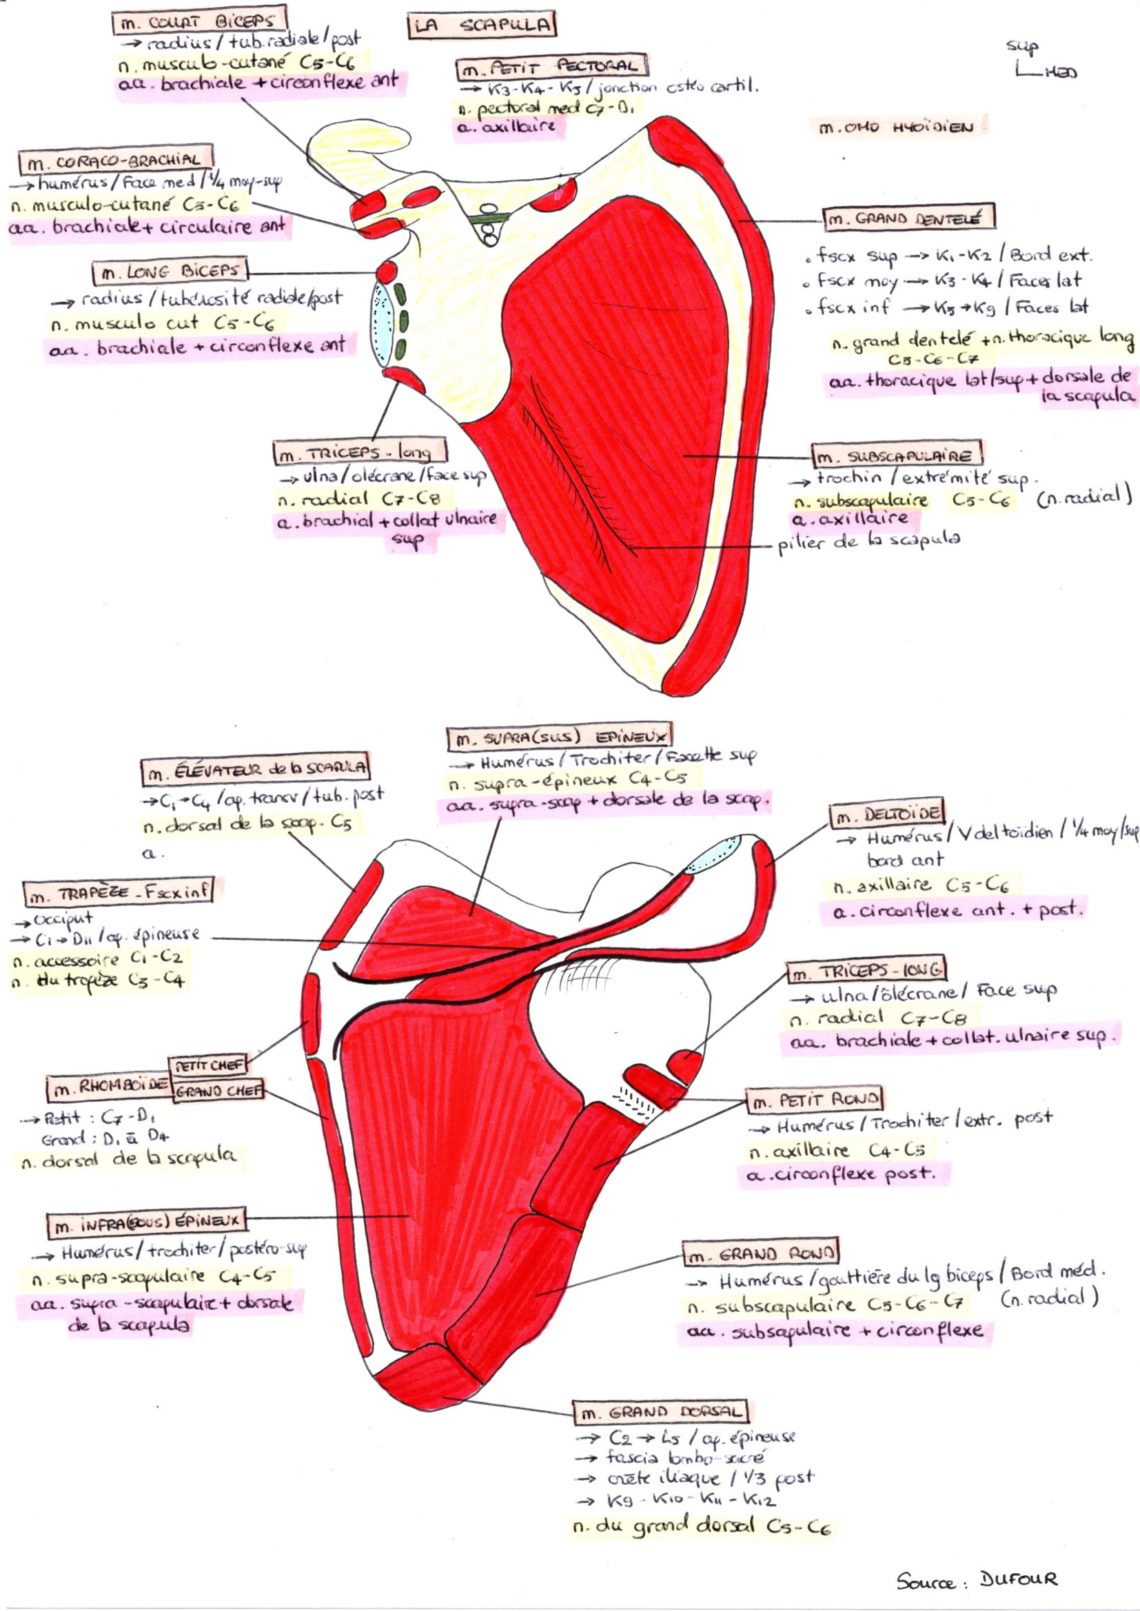 m. COURT BICEPS
→ radius / tub. radiale / post
n. musculo-cutané C5-C6
aa. brachiale + circonflexe ant
LA SCAPULA
m. PETIT PECTORAL
→ K3-K4-K5 / jonction ostéo cartil.
n. pectoral med C7-D1
a. axillaire
sup
MED
m. OMO HYOÏDIEN
m. CORACO-BRACHIAL
→ humérus / Face med / 1/4 moy-sup
n. musculo-cutané C5-C6
aa. brachiale + circulaire ant
m. GRAND DENTELÉ
• fscx sup → K1-K2 / Bord ext.
• fscx moy → K3-K4 / Faces lat
• fscx inf → K5→K9 / Faces lat
n. grand dentelé + n. thoracique long
C5-C6-C7
aa. thoracique lat/sup + dorsale de
la scapula
m. LONG BICEPS
→ radius / tubérosité radiale/post
n. musculo cut C5-C6
aa. brachiale + circonflexe ant
m. TRICEPS - long
→ ulna / olécrane / face sup
n. radial C7-C8
a. brachial + collat ulnaire
sup
m. SUBSCAPULAIRE
→ trochin / extrémité sup.
n. subscapulaire C5-C6 (n. radial)
a. axillaire
pilier de la scapula
m. SUPRA(SUS) EPINEUX
→ Humérus / Trochiter / Facette sup
n. supra-épineux C4-C5
aa. supra-scap + dorsale de la scap.
m. ÉLÉVATEUR de la SCAPULA
→ C1→C4 / ap. transv / tub. post
n. dorsal de la scap. C5
a.
m. DELTOÏDE
→ Humérus / V deltoïdien / 1/4 moy/sup
bord ant
n. axillaire C5-C6
a. circonflexe ant. + post.
m. TRAPÈZE - Fscx inf
→ occiput
→ C1→D11 / ap. épineuse
n. accessoire C1-C2
n. du trapèze C3-C4
m. TRICEPS - LONG
→ ulna / olécrane / Face sup
n. radial C7-C8
aa. brachiale + collat. ulnaire sup.
m. RHOMBOÏDE
PETIT CHEF
GRAND CHEF
→ Petit : C7-D1
Grand : D1 à D4
n. dorsal de la scapula
m. PETIT ROND
→ Humérus / Trochiter / extr. post
n. axillaire C4-C5
a. circonflexe post.
m. INFRA(SOUS) ÉPINEUX
→ Humérus / trochiter / postéro-sup
n. supra-scapulaire C4-C5
aa. supra-scapulaire + dorsale
de la scapula
m. GRAND ROND
→ Humérus / gouttière du lg biceps / Bord méd.
n. subscapulaire C5-C6-C7 (n. radial)
aa. subsapulaire + circonflexe
m. GRAND DORSAL
→ C2 → L5 / ap. épineuse
→ fascia lombo-sacré
→ crête iliaque / 1/3 post
→ K9 - K10 - K11 - K12
n. du grand dorsal C5-C6
Source : DUFOUR